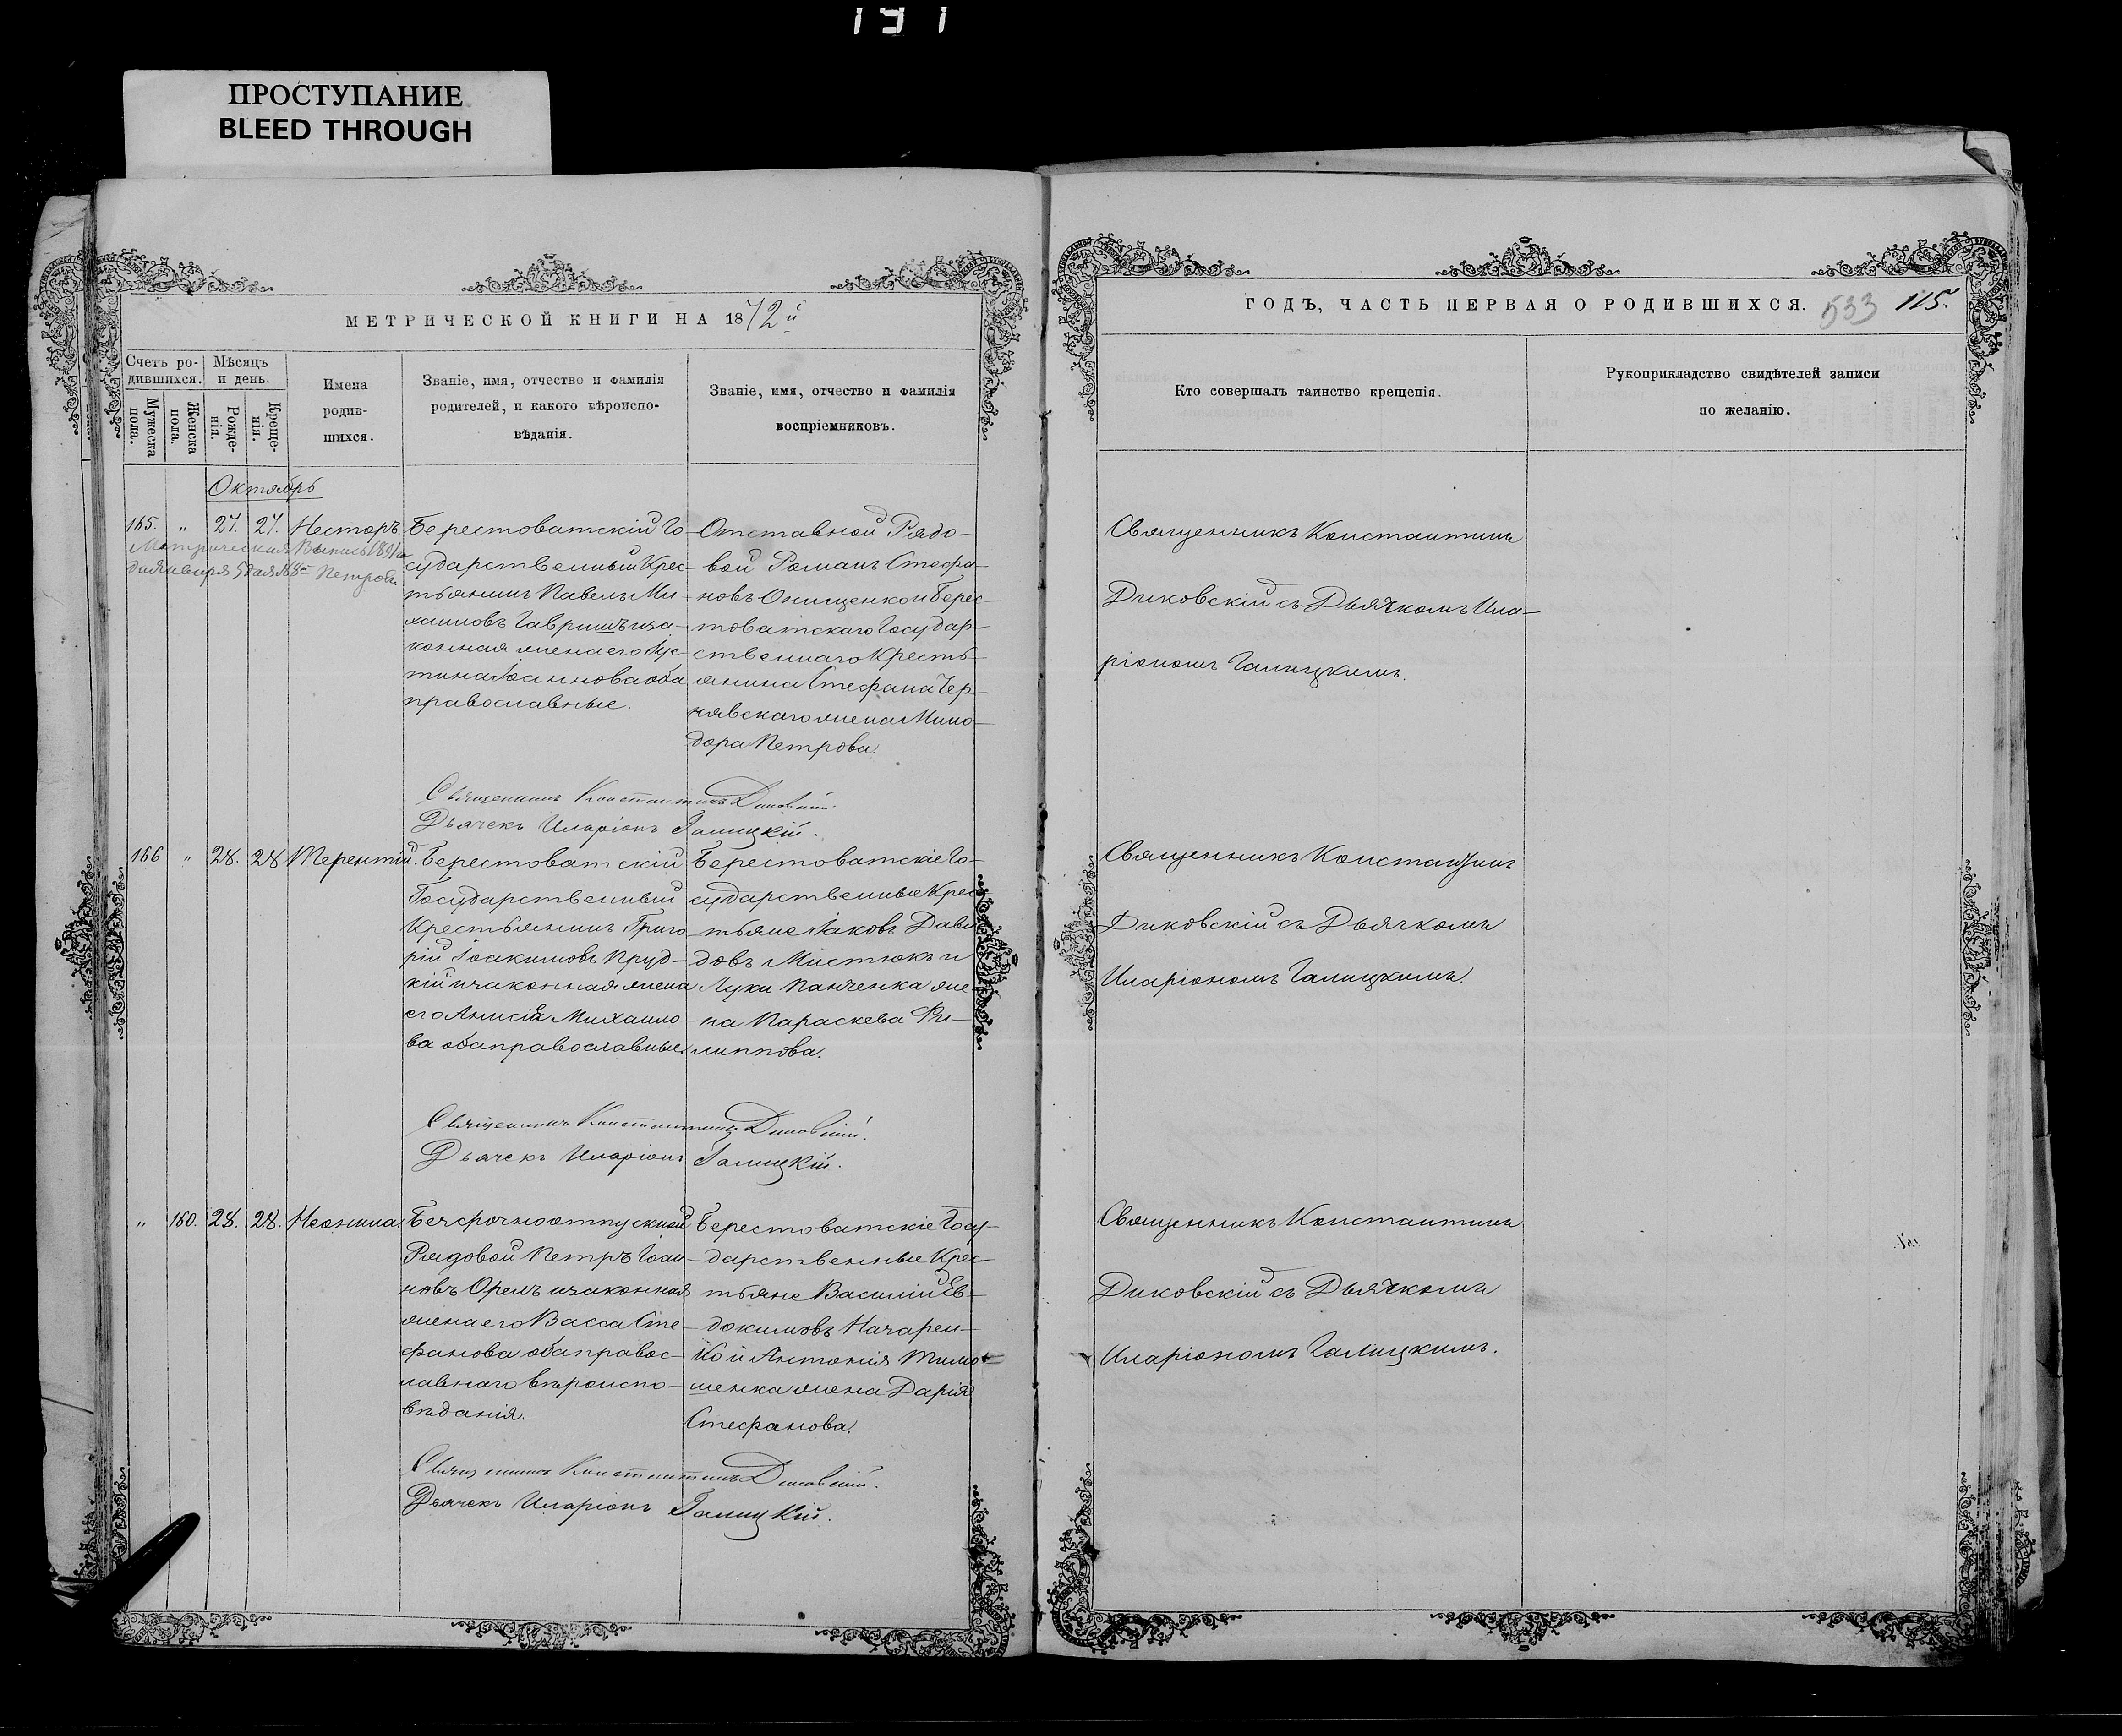 191
ПРОСТУПАНИЕ
BLEED THROUGH
МЕТРИЧЕСКОЙ КНИГИ НА 1872й
Счетъ ро-
дившихся.
Мѣсяцъ
и день.
Мужеска пола.
Женска пола.
Рожде-
нія.
Креще-
нія.
Имена
родив-
шихся.
Званіе, имя, отчество и фамилія
родителей, и какого вѣроиспо-
вѣданія.
Званіе, имя, отчество и фамилія
воспріемниковъ.
Октябрь
165. " 27. 27. Несторъ.
Метрическая Выпись 1891 го
Берестоватскій Го-
сударственный Крес-
тьянинъ Павелъ Ми-
хаиловъ Гавришъ и за-
конная жена его Іус-
тина Іоаннова оба
православные.
Отставной Рядо-
вой Романъ Стефа-
новъ Онищенко и Берес-
товатскаго Государ-
ственнаго Кресть-
янина Стефана Чер-
нявскаго жена Мино-
дора Петрова.
Священникъ Константинъ Диковскій.
Дьячекъ Иларіонъ Галицкій.
166 " 28. 28 Терентій.
Берестоватскій
Государственный
Крестьянинъ Григо-
рій Іоакимовъ Пруд-
кій и законная жена
его Анисія Михаило-
ва оба православные.
Берестоватскіе Го-
сударственные Крес-
тьяне Іаковъ Дави-
довъ Мистюкъ и
Луки Панченка же-
на Параскева Фи-
липпова.
Священникъ Константинъ Диковскій.
Дьячекъ Иларіонъ Галицкій.
" 160. 28. 28. Неонила.
Безсрочноотпускной
Рядовой Петръ Іоан-
новъ Орелъ и законная
жена его Васса Сте-
фанова оба правос-
лавнаго вѣроиспо-
вѣданія.
Берестоватскіе Госу-
дарственные Крес-
тьяне Василій Ев-
докимовъ Назарен-
ко и Антонія Тимо-
шенка жена Дарія
Стефанова.
Священникъ Константинъ Диковскій.
Дьячекъ Иларіонъ Галицкій.
ГОДЪ, ЧАСТЬ ПЕРВАЯ О РОДИВШИХСЯ.
533 115.
Кто совершалъ таинство крещенія.
Рукоприкладство свидѣтелей записи
по желанію.
Священникъ Константинъ
Диковскій съ Дьячкомъ Ила-
ріономъ Галицкимъ.
Священникъ Константинъ
Диковскій съ Дьячкомъ
Иларіономъ Галицкимъ.
Священникъ Константинъ
Диковскій съ Дьячкомъ
Иларіономъ Галицкимъ.